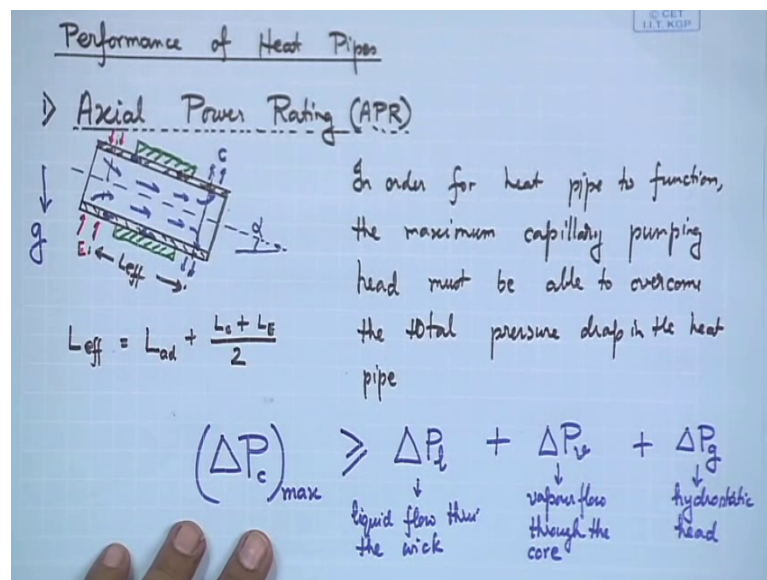 © CET
I.I.T. KGP
Performance of Heat Pipes
i) Axial Power Rating (APR)
g
E
C
α
Leff
L_eff = L_ad + (L_c + L_E)/2
In order for heat pipe to function,
the maximum capillary pumping
head must be able to overcome
the total pressure drop in the heat
pipe
(ΔP_c)_max ≥ ΔP_l + ΔP_v + ΔP_g
liquid flow thru'
the wick
vapour flow
through the
core
hydrostatic
head